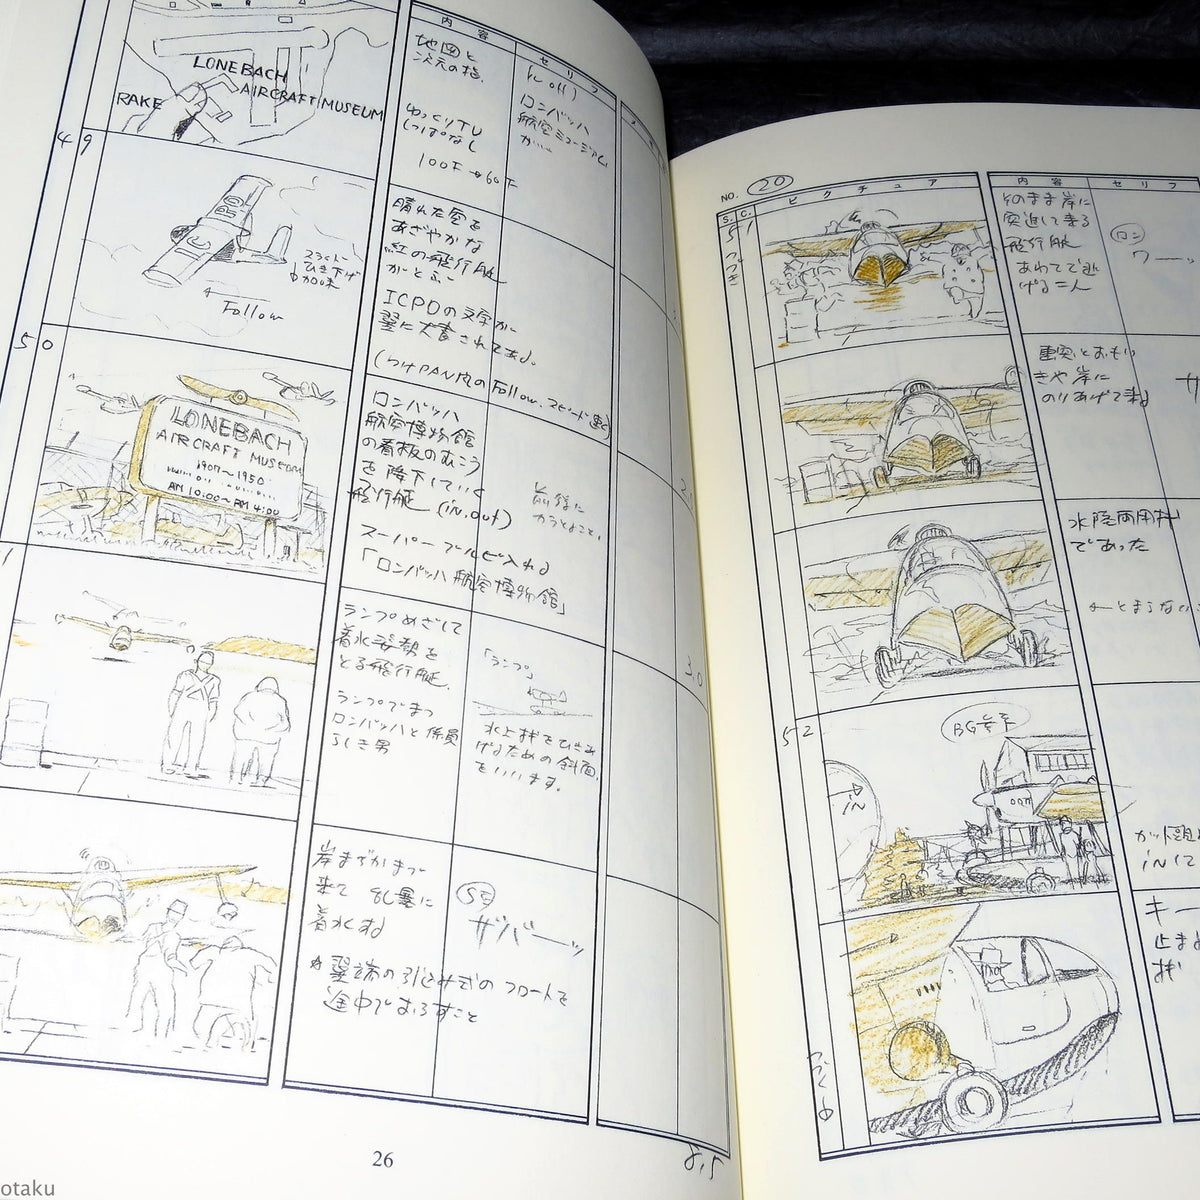 内容
セリフ
LONEBACH
AIRCRAFT MUSEUM
RAKE
地図と
次元の指.
ゆっくりTU
しっぱなし
100F→60F
(off)
ロンバッハ
航空ミュージアム
か……
49
ICPO
Follow
晴れた空を
あざやかな
紅の飛行艇
がとぶ
ICPOの文字が
翼に大書されてある。
50
LONEBACH
AIRCRAFT MUSEUM
1907〜1950
AM 10:00〜PM 4:00
ロンバッハ
航空博物館
の看板のむこう
を降下していく
飛行艇 (in, out)
スーパーフルビ入れる
「ロンバッハ航空博物館」
2.0
ランプめざして
着水姿勢を
とる飛行艇.
ランプでまつ
ロンバッハと係員
らしき男
「ランプ」
水上機をひきあ
げるための斜面
をいいます。
3.0
岸まぢかまで
来て 乱暴に
着水する
☆翼端の引込み式のフロートを
途中でおろすこと
ザバーッ
8.5
26
NO. 20
S. C.
ピクチュア
内容
セリフ
51
つづき
そのまま岸に
突進して来る
飛行艇
あわてて逃
げる二人
ロン
ワーッ
重突とおもい
きや岸に
のりあげて来る
ザ
水陸両用機
であった
←とまらない
52
BG兼用
IN
キー
止まる
機
つづく
otaku